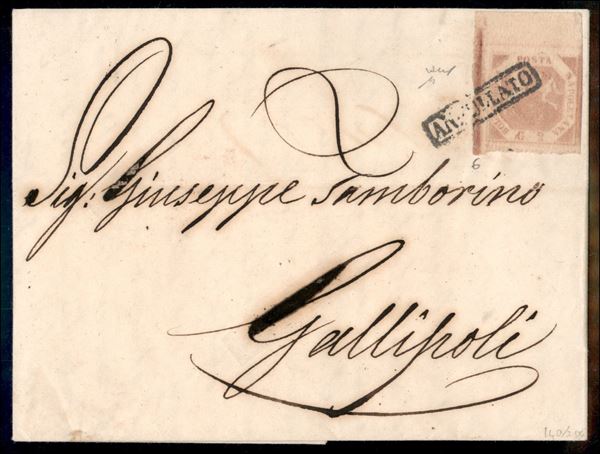 POSTA
NAPOLETANA
G 2
ANNULLATO
6
Sig: Giuseppe Tamborino
Gallipoli